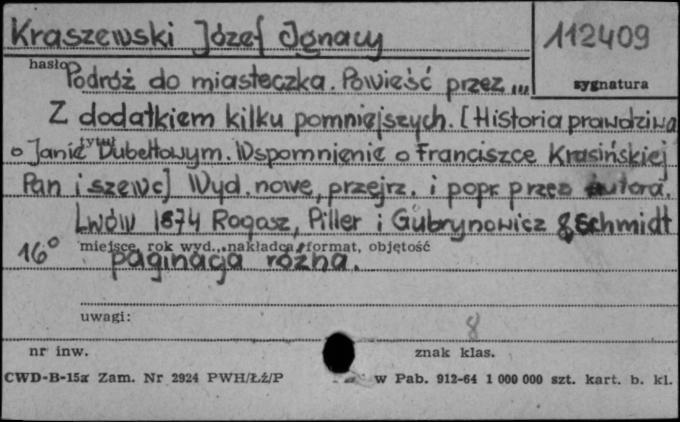 Kraszewski Józef Ignacy
112409
hasło
Podróż do miasteczka. Powieść przez ...
sygnatura
Z dodatkiem kilku pomniejszych. [Historia prawdziwa
tytuł
o Janie Dubeltowym. Wspomnienie o Franciszce Krasińskiej
Pan i szewc] Wyd. nowe, przejrz. i popr. przez autora.
Lwów 1874 Rogosz, Piller i Gubrynowicz & Schmidt
miejsce, rok wyd., nakładca, format, objętość
16° paginacja różna.
uwagi:
8
nr inw.
znak klas.
CWD-B-15a Zam. Nr 2924 PWH/Łź/P
w Pab. 912-64 1 000 000 szt. kart. b. kl.